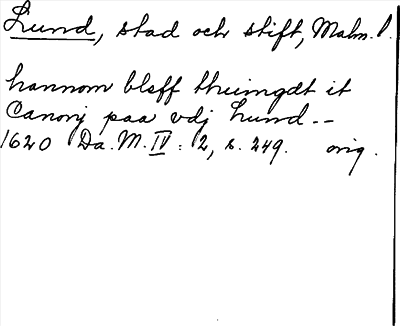 Lund, stad och stift, Malm. l.
hannom bleff thuingdt it
Canonj paa vdj Lund --
1620 Da. M. IV: 2, s. 249. orig.